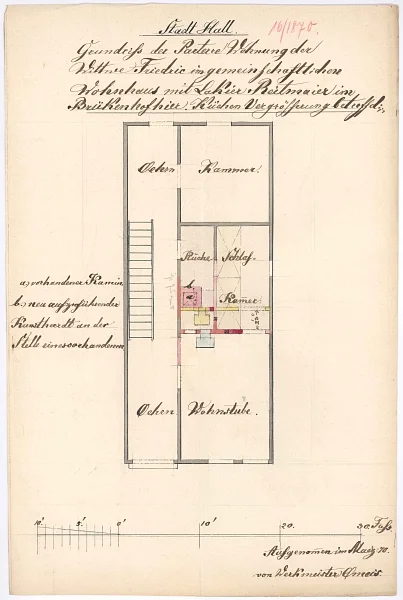 Stadt Hall.
16/1870.
Grundriss der Parterre Wohnung der
Wittwe Friedric in gemeinschaftlichem
Wohnhaus mit Lakier Reitmaier im
Brückenhof hier. Küchen Vergrösserung betreffd.
Oehrn
Kammer.
Küche
Schlaf-
b
a
a) vorhandener Kamin
b) neu aufzuführender
Kamer.
Kunstheardt an der
Stelle eines vorhandenen
Oehrn
Wohnstube.
10'. 5'. 0' 10' 20. 30. Fuss
Aufgenomen im März 70.
von Werkmeister